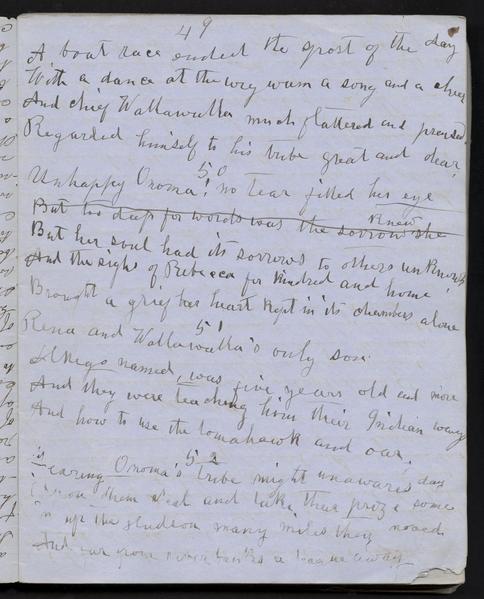 49
A boat race ended the sport of the day
With a dance at the wigwam a song and a cheer
And chief Wallawalla much flattered and praised
Regarded himself to his tribe great and dear,
50
Unhappy Onoma! no tear filled her eye
But too deep for words was the sorrow she knew
But her soul had its sorrows to others unknown
And the sighs of Rebecca for kindred and home
Brought a grief her heart kept in its chambers alone
51
Rena and Wallawalla's only son
named, was five years old and more
And they were teaching him their Indian ways
And how to use the tomahawk and oar,
52
Fearing Onoma's tribe might unawares
upon them steal and take their prize some day
up the Hudson many miles they moved
And